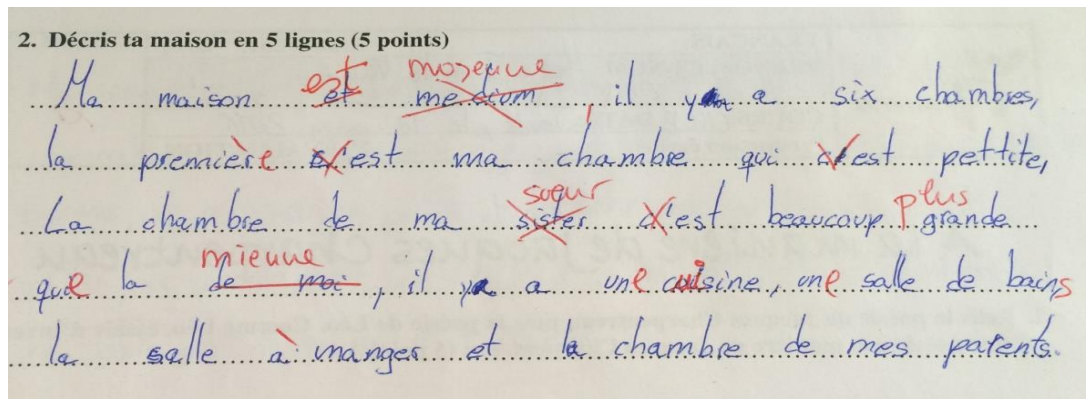 2. Décris ta maison en 5 lignes (5 points)
est moyenne
Ma maison et medium il y a six chambres,
la première c'est ma chambre qui c'est pettite,
soeur plus
La chambre de ma sister c'est beaucoup grande
mienne
que la de moi, il y a une cuisine, une salle de bains
la salle à manger et la chambre de mes parents.